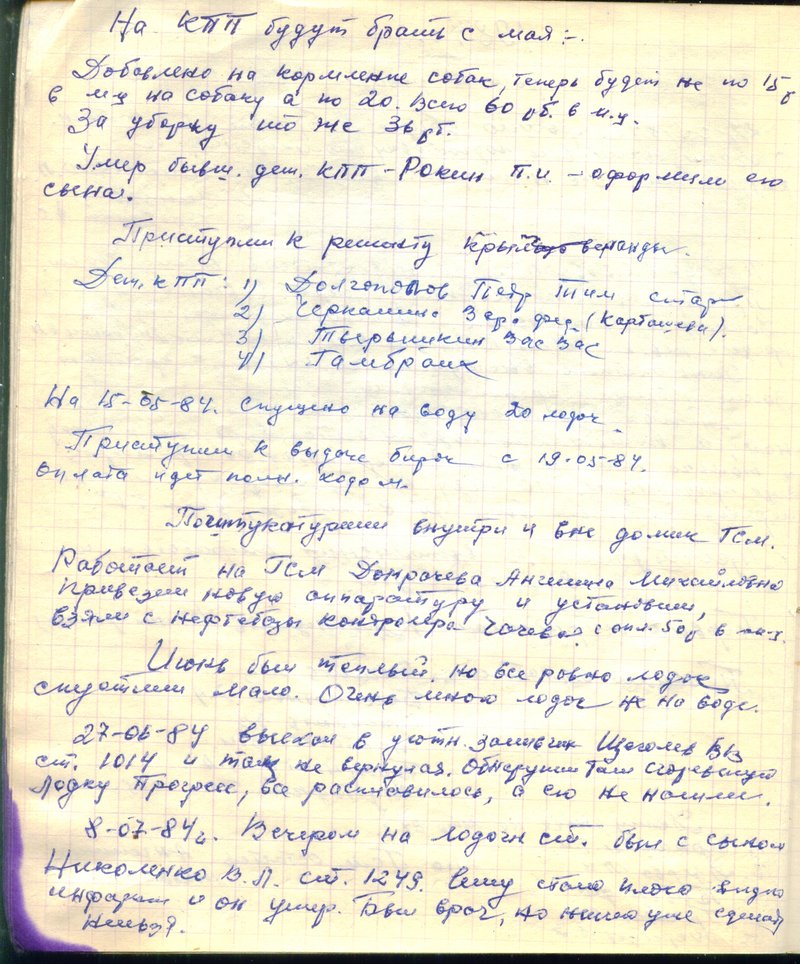 На КПП будут брать с мая:-.
Добавлено на кормление собак, теперь будет не по 15р
в м-ц на собаку а по 20. Всего 60 рб. в м-ц.
За уборку то же 36 рб.
Умер бывш. деж. КПП - Рокин П.И. - оформили его
сына.
Приступили к ремонту крыши веранды.
Деж. КПП: 1) Долгополов Петр Тим
2) (Карташева).
3) Вас Вас
4)
На 15-05-84. спущено на воду 20 лодок.
Приступили к выдаче бирок с 19-05-84.
Оплата идет полн. ходом.
Поштукатурили внутри и вне домик ГСМ.
Работает на ГСМ Донрачева Ангелина Михайловна
привезли новую аппаратуру и установили,
взяли с нефтебазы контролера с опл. 50р в м-ц.
Июнь был теплый, но все равно лодок
спустили мало. Очень много лодок не на воде.
27-06-84 выехал в уютн. заливчик Щеголев ВВ
ст. 1014 и там не вернулся. Обнаружили там сгоревшую
лодку Прогресс, все расплавилось, а его не нашли.
8-07-84г. Вечером на лодочн ст. был с сыном
Николенко В.П. ст. 1249. Ему стало плохо видно
инфаркт и он умер. Был врач, но ничего уже сделать
нельзя.